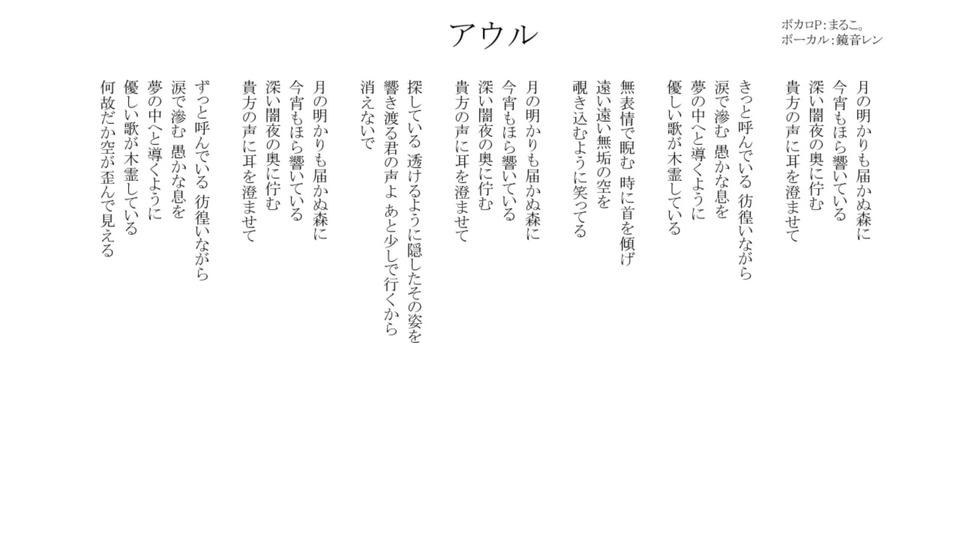 アウル
ボカロP：まるこ。
ボーカル：鏡音レン
月の明かりも届かぬ森に
今宵もほら響いている
深い闇夜の奥に佇む
貴方の声に耳を澄ませて
きっと呼んでいる 彷徨いながら
涙で滲む 愚かな息を
夢の中へと導くように
優しい歌が木霊している
無表情で睨む 時に首を傾げ
遠い遠い無垢の空を
覗き込むように笑ってる
月の明かりも届かぬ森に
今宵もほら響いている
深い闇夜の奥に佇む
貴方の声に耳を澄ませて
探している 透けるように隠したその姿を
響き渡る君の声よ あと少しで行くから
消えないで
月の明かりも届かぬ森に
今宵もほら響いている
深い闇夜の奥に佇む
貴方の声に耳を澄ませて
ずっと呼んでいる 彷徨いながら
涙で滲む 愚かな息を
夢の中へと導くように
優しい歌が木霊している
何故だか空が歪んで見える